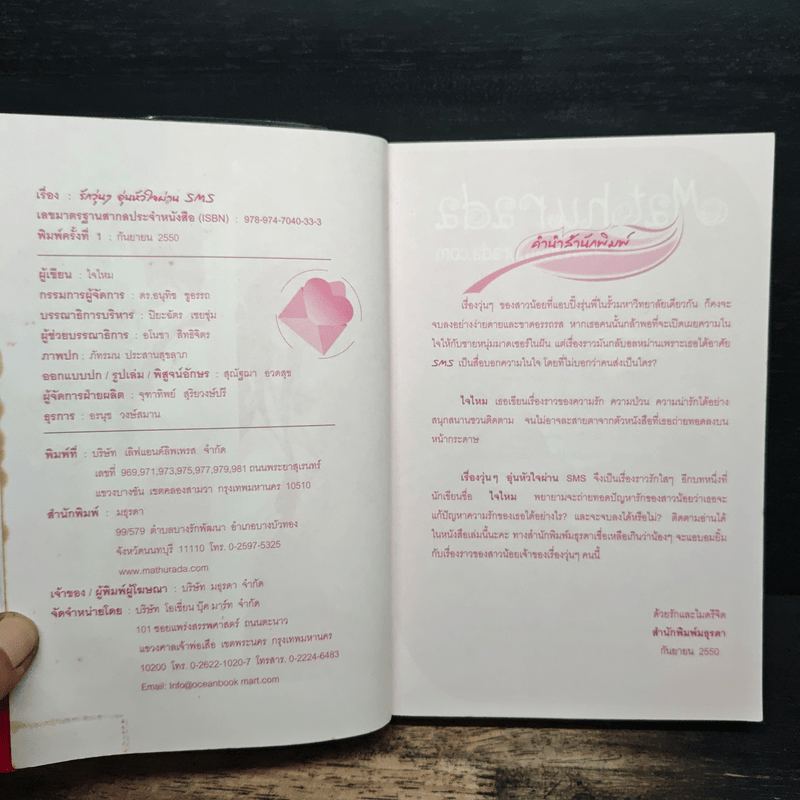 เรื่อง : รักวุ่นๆ อุ่นหัวใจผ่าน SMS
เลขมาตรฐานสากลประจำหนังสือ (ISBN) : 978-974-7040-33-3
พิมพ์ครั้งที่ 1 : กันยายน 2550
ผู้เขียน : ใจไหม
กรรมการผู้จัดการ : ดร.อนุทิช ชูอรรถ
บรรณาธิการบริหาร : ปิยะฉัตร เชยชุ่ม
ผู้ช่วยบรรณาธิการ : อโนชา สิทธิจิตร
ภาพปก : ภัทรมน ประสานสุขลาภ
ออกแบบปก / รูปเล่ม / พิสูจน์อักษร : สุณัฐฌา อวดสุข
ผู้จัดการฝ่ายผลิต : จุฑาทิพย์ สุริยวงษ์ปรี
ธุรการ : อรนุช วงษ์สมาน
พิมพ์ที่ : บริษัท เลิฟแอนด์ลิพเพรส จำกัด
เลขที่ 969,971,973,975,977,979,981 ถนนพระยาสุเรนทร์
แขวงบางชัน เขตคลองสามวา กรุงเทพมหานคร 10510
สำนักพิมพ์ : มธุรดา
99/579 ตำบลบางรักพัฒนา อำเภอบางบัวทอง
จังหวัดนนทบุรี 11110 โทร. 0-2597-5325
www.mathurada.com
เจ้าของ / ผู้พิมพ์ผู้โฆษณา : บริษัท มธุรดา จำกัด
จัดจำหน่ายโดย : บริษัท โอเชี่ยน บุ๊ค มาร์ท จำกัด
101 ซอยแพร่งสรรพศาสตร์ ถนนตะนาว
แขวงศาลเจ้าพ่อเสือ เขตพระนคร กรุงเทพมหานคร
10200 โทร. 0-2622-1020-7 โทรสาร. 0-2224-6483
Email: Info@oceanbook mart.com
Mathurada
คำนำสำนักพิมพ์
เรื่องวุ่นๆ ของสาวน้อยที่แอบปิ๊งรุ่นพี่ในรั้วมหาวิทยาลัยเดียวกัน ก็คงจะ
จบลงอย่างง่ายดายและขาดอรรถรส หากเธอคนนั้นกล้าพอที่จะเปิดเผยความใน
ใจให้กับชายหนุ่มมาดเซอร์ในฝัน แต่เรื่องราวมันกลับอลหม่านเพราะเธอได้อาศัย
SMS เป็นสื่อบอกความในใจ โดยที่ไม่บอกว่าคนส่งเป็นใคร?
ใจไหม เธอเขียนเรื่องราวของความรัก ความป่วน ความน่ารักได้อย่าง
สนุกสนานชวนติดตาม จนไม่อาจละสายตาจากตัวหนังสือที่เธอถ่ายทอดลงบน
หน้ากระดาษ
เรื่องวุ่นๆ อุ่นหัวใจผ่าน SMS จึงเป็นเรื่องราวรักใสๆ อีกบทหนึ่งที่
นักเขียนชื่อ ใจไหม พยายามจะถ่ายทอดปัญหารักของสาวน้อยว่าเธอจะ
แก้ปัญหาความรักของเธอได้อย่างไร? และจะจบลงได้หรือไม่? ติดตามอ่านได้
ในหนังสือเล่มนี้นะคะ ทางสำนักพิมพ์มธุรดาเชื่อเหลือเกินว่าน้องๆ จะแอบอมยิ้ม
กับเรื่องราวของสาวน้อยเจ้าของเรื่องวุ่นๆ คนนี้
ด้วยรักและไมตรีจิต
สำนักพิมพ์มธุรดา
กันยายน 2550